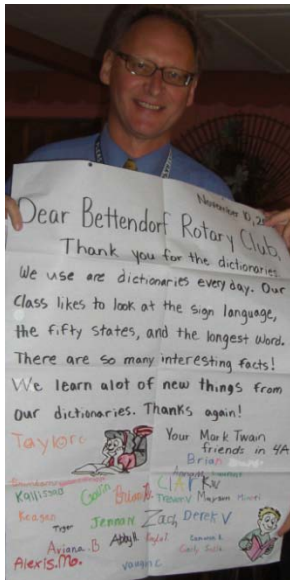 November 10, 2
Dear Bettendorf Rotary Club,
Thank you for the dictionaries.
We use are dictionaries every day. Our
class likes to look at the sign language,
the fifty states, and the longest word.
There are so many interesting facts!
We learn alot of new things from
our dictionaries. Thanks again!
Your Mark Twain
friends in 4A
Taylor
Brian
Gavin
Keagan
Tiger
Jennan
Zach
Derek V
Trevor V
Ariana. B
Abby H
Alexis. Mo.